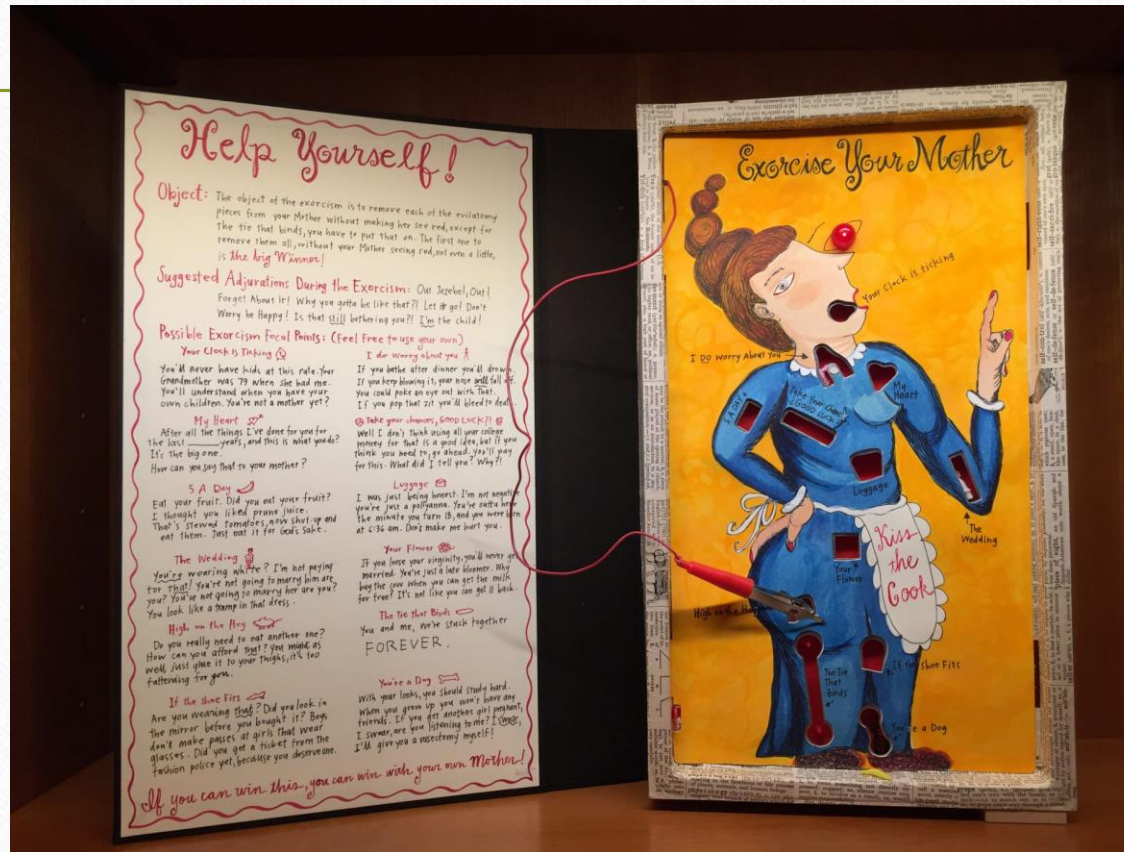 Help Yourself!
Object: The object of the exorcism is to remove each of the evilatomy
pieces from your Mother without making her see red, except for
the tie that binds, you have to put that on. The first one to
remove them all, without your Mother seeing red, not even a little,
is the big Winner!
Suggested Adjurations During the Exorcism: Out Jezebel, Out!
Forget About It! Why you gotta be like that?! Let it go! Don't
Worry be Happy! Is that still bothering you?! I'm the child!
Possible Exorcism Focal Points: (Feel free to use your own)
Your Clock is Ticking
You'll never have kids at this rate. Your
Grandmother was 79 when she had me.
You'll understand when you have your
own children. You're not a mother yet?
My Heart
After all the things I've done for you for
the last ____ years, and this is what you do?
It's the big one.
How can you say that to your mother?
5 A Day
Eat your fruit. Did you eat your fruit?
I thought you liked prune juice.
That's stewed tomatoes, now shut up and
eat them. Just eat it for God's sake.
The Wedding
You're wearing white? I'm not paying
for that! You're not going to marry him are
you? You're not going to marry her are you?
You look like a tramp in that dress.
High on the Hog
Do you really need to eat another one?
How can you afford that? You might as
well just glue it to your thighs, it's too
fattening for you.
If the Shoe Fits
Are you wearing that? Did you look in
the mirror before you bought it? Boys
don't make passes at girls that wear
glasses. Did you get a ticket from the
fashion police yet, because you deserve one.
I do worry about you
If you bathe after dinner you'll drown.
If you keep blowing it, your nose will fall off.
You could poke an eye out with that.
If you pop that zit you'll bleed to death.
Take your chances, GOOD LUCK?!
Well I don't think using all your college
money for that is a good idea, but if you
think you need to, go ahead. You'll pay
for this. What did I tell you? Why?!
Luggage
I was just being honest. I'm not negative
you're just a pollyanna. You're outta here
the minute you turn 18, and you were born
at 6:36 am. Don't make me hurt you.
Your Flower
If you lose your virginity, you'll never get
married. You're just a late bloomer. Why
buy the cow when you can get the milk
for free? It's not like you can get it back.
The Tie that Binds
You and me, we're stuck together
FOREVER.
You're a Dog
With your looks, you should study hard.
When you grow up you won't have any
friends. If you get another girl pregnant,
I swear, are you listening to me? I swear,
I'll give you a vasectomy myself!
If you can win this, you can win with your own Mother!
Exorcise Your Mother
Your Clock is ticking
I Do Worry About You
My
Heart
5 A DAY
Take Your Chances
GOOD LUCK
Luggage
The
Wedding
Your
Flower
Kiss
the
Cook
High on the
If the Shoe Fits
The Tie
That
Binds
You're a Dog